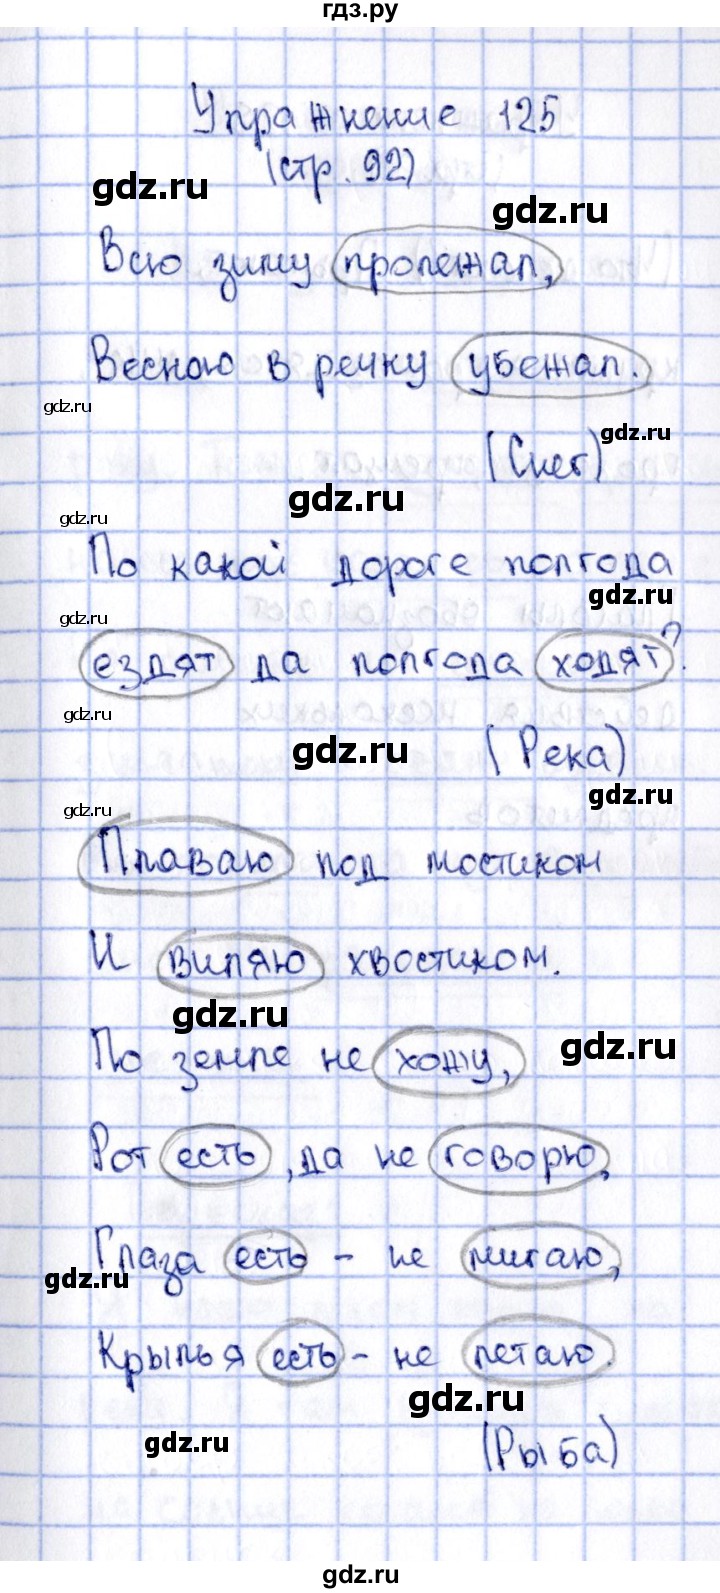 гдз.ру
Упражнение 125
(стр. 92)
gdz.ru
gdz.ru
Всю зиму пролежал,
Весною в речку убежал.
gdz.ru
gdz.ru
(Снег)
gdz.ru
gdz.ru
По какой дороге полгода
gdz.ru
gdz.ru
ездят да полгода ходят?
gdz.ru
gdz.ru
(Река)
gdz.ru
gdz.ru
Плаваю под мостиком
И виляю хвостиком.
gdz.ru
По земле не хожу,
gdz.ru
Рот есть, да не говорю,
Глаза есть - не мигаю,
gdz.ru
Крылья есть - не летаю.
gdz.ru
gdz.ru
(Рыба)
gdz.ru